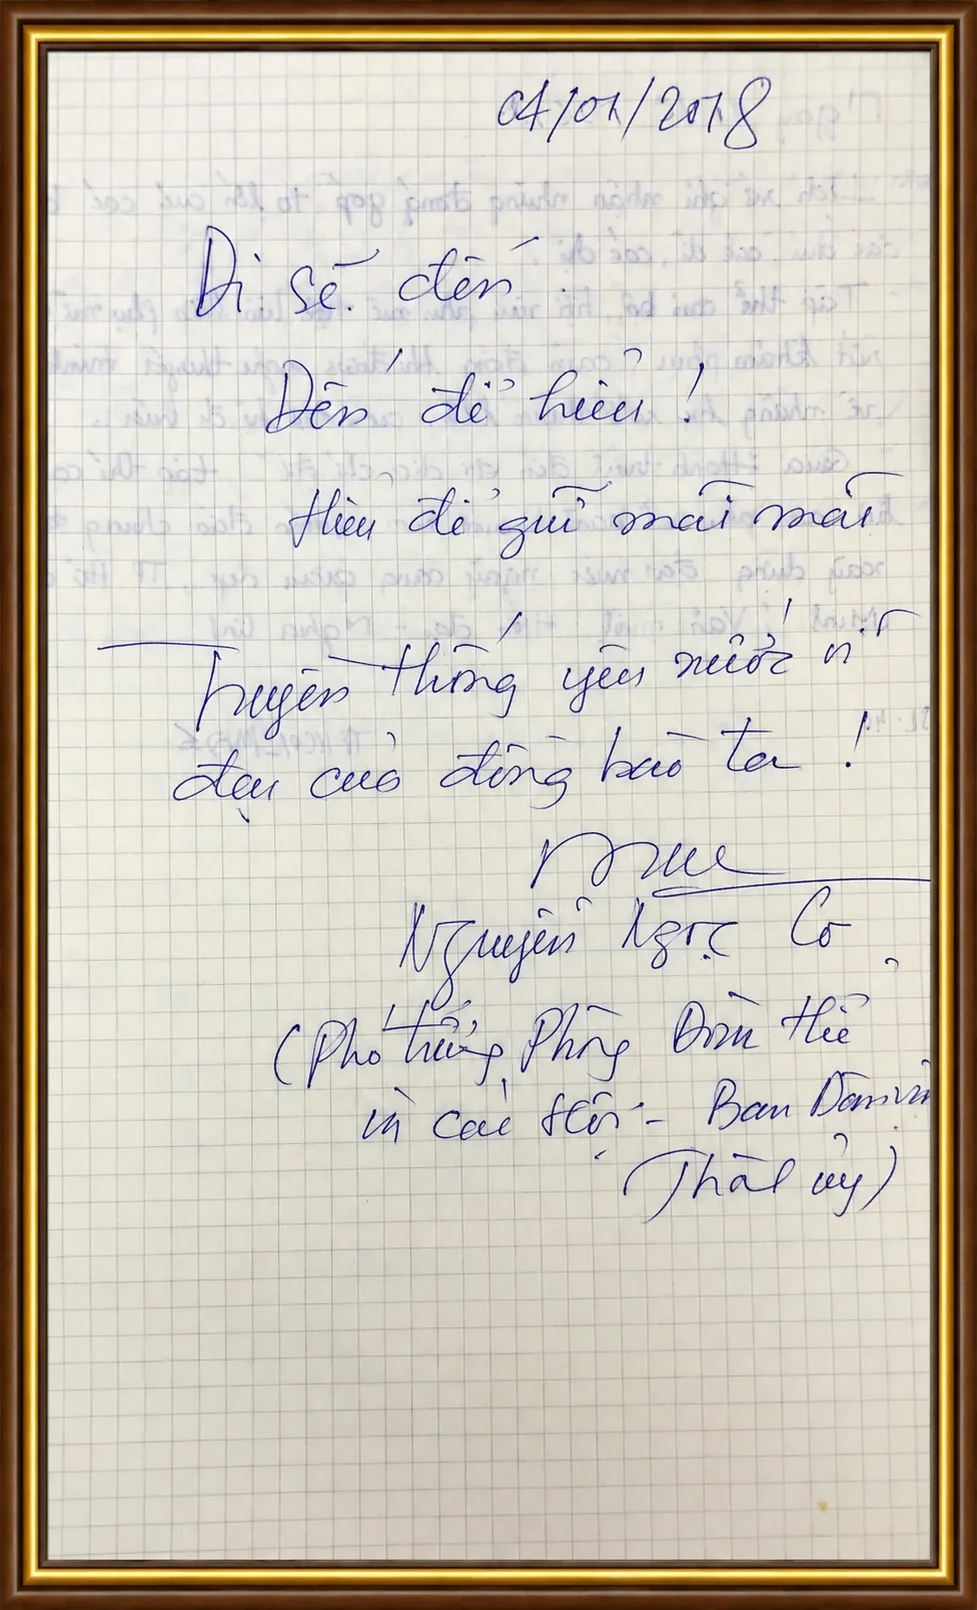 04/01/2018
Đi sẽ đến
Đến để hiểu!
Hiểu để giữ mãi mãi
Truyền thống yêu nước vĩ
đại của đồng bào ta!
Nguyễn Ngọc Cơ
(Phó trưởng Phòng Đoàn thể
và các Hội - Ban Dân vận
Thành ủy)